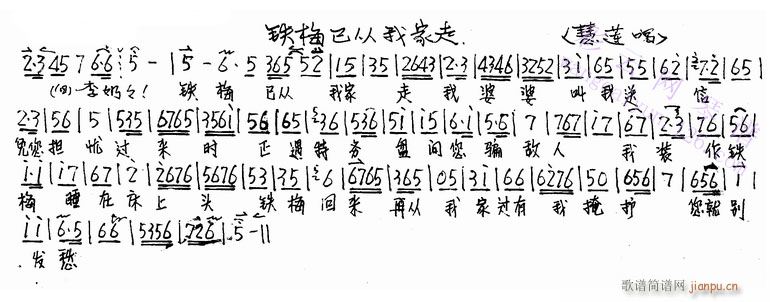 铁梅已从我家走 (慧莲唱)
2·3 45 7 6·6 5 - | 5 - 6·5 365 52 | 15 | 35 | 2643 | 2·3 | 4346 | 3252 | 3i | 65 | 55 | 62 | 7·2 | 65 |
(白)李奶奶! 铁梅 已从 我家 走 我婆婆 叫我送 信
2·3 | 56 | 5 | 535 | 6765 | 356i | 56 | 65 | 36 | 536 | 5i | i5 | 6·i | 5·5 | 7 | 767 | i7 | 67 | 2·3 | 76 | 56 |
免您担忧过来时 正遇特务盘问您骗敌人 我装作铁
i·i | i7 | 67 | 2 | 2676 | 5676 | 53 | 35 | 6 | 6765 | 365 | 05 | 3i | 66 | 6276 | 50 | 656 | 7 | 656 | i i |
梅睡在床上头 铁梅回来 再从我家过有我掩护 您就别
i i | 6·5 | 66 | 5356 | 726 | 5 - ||
发愁
歌谱简谱网
jianpu.cn